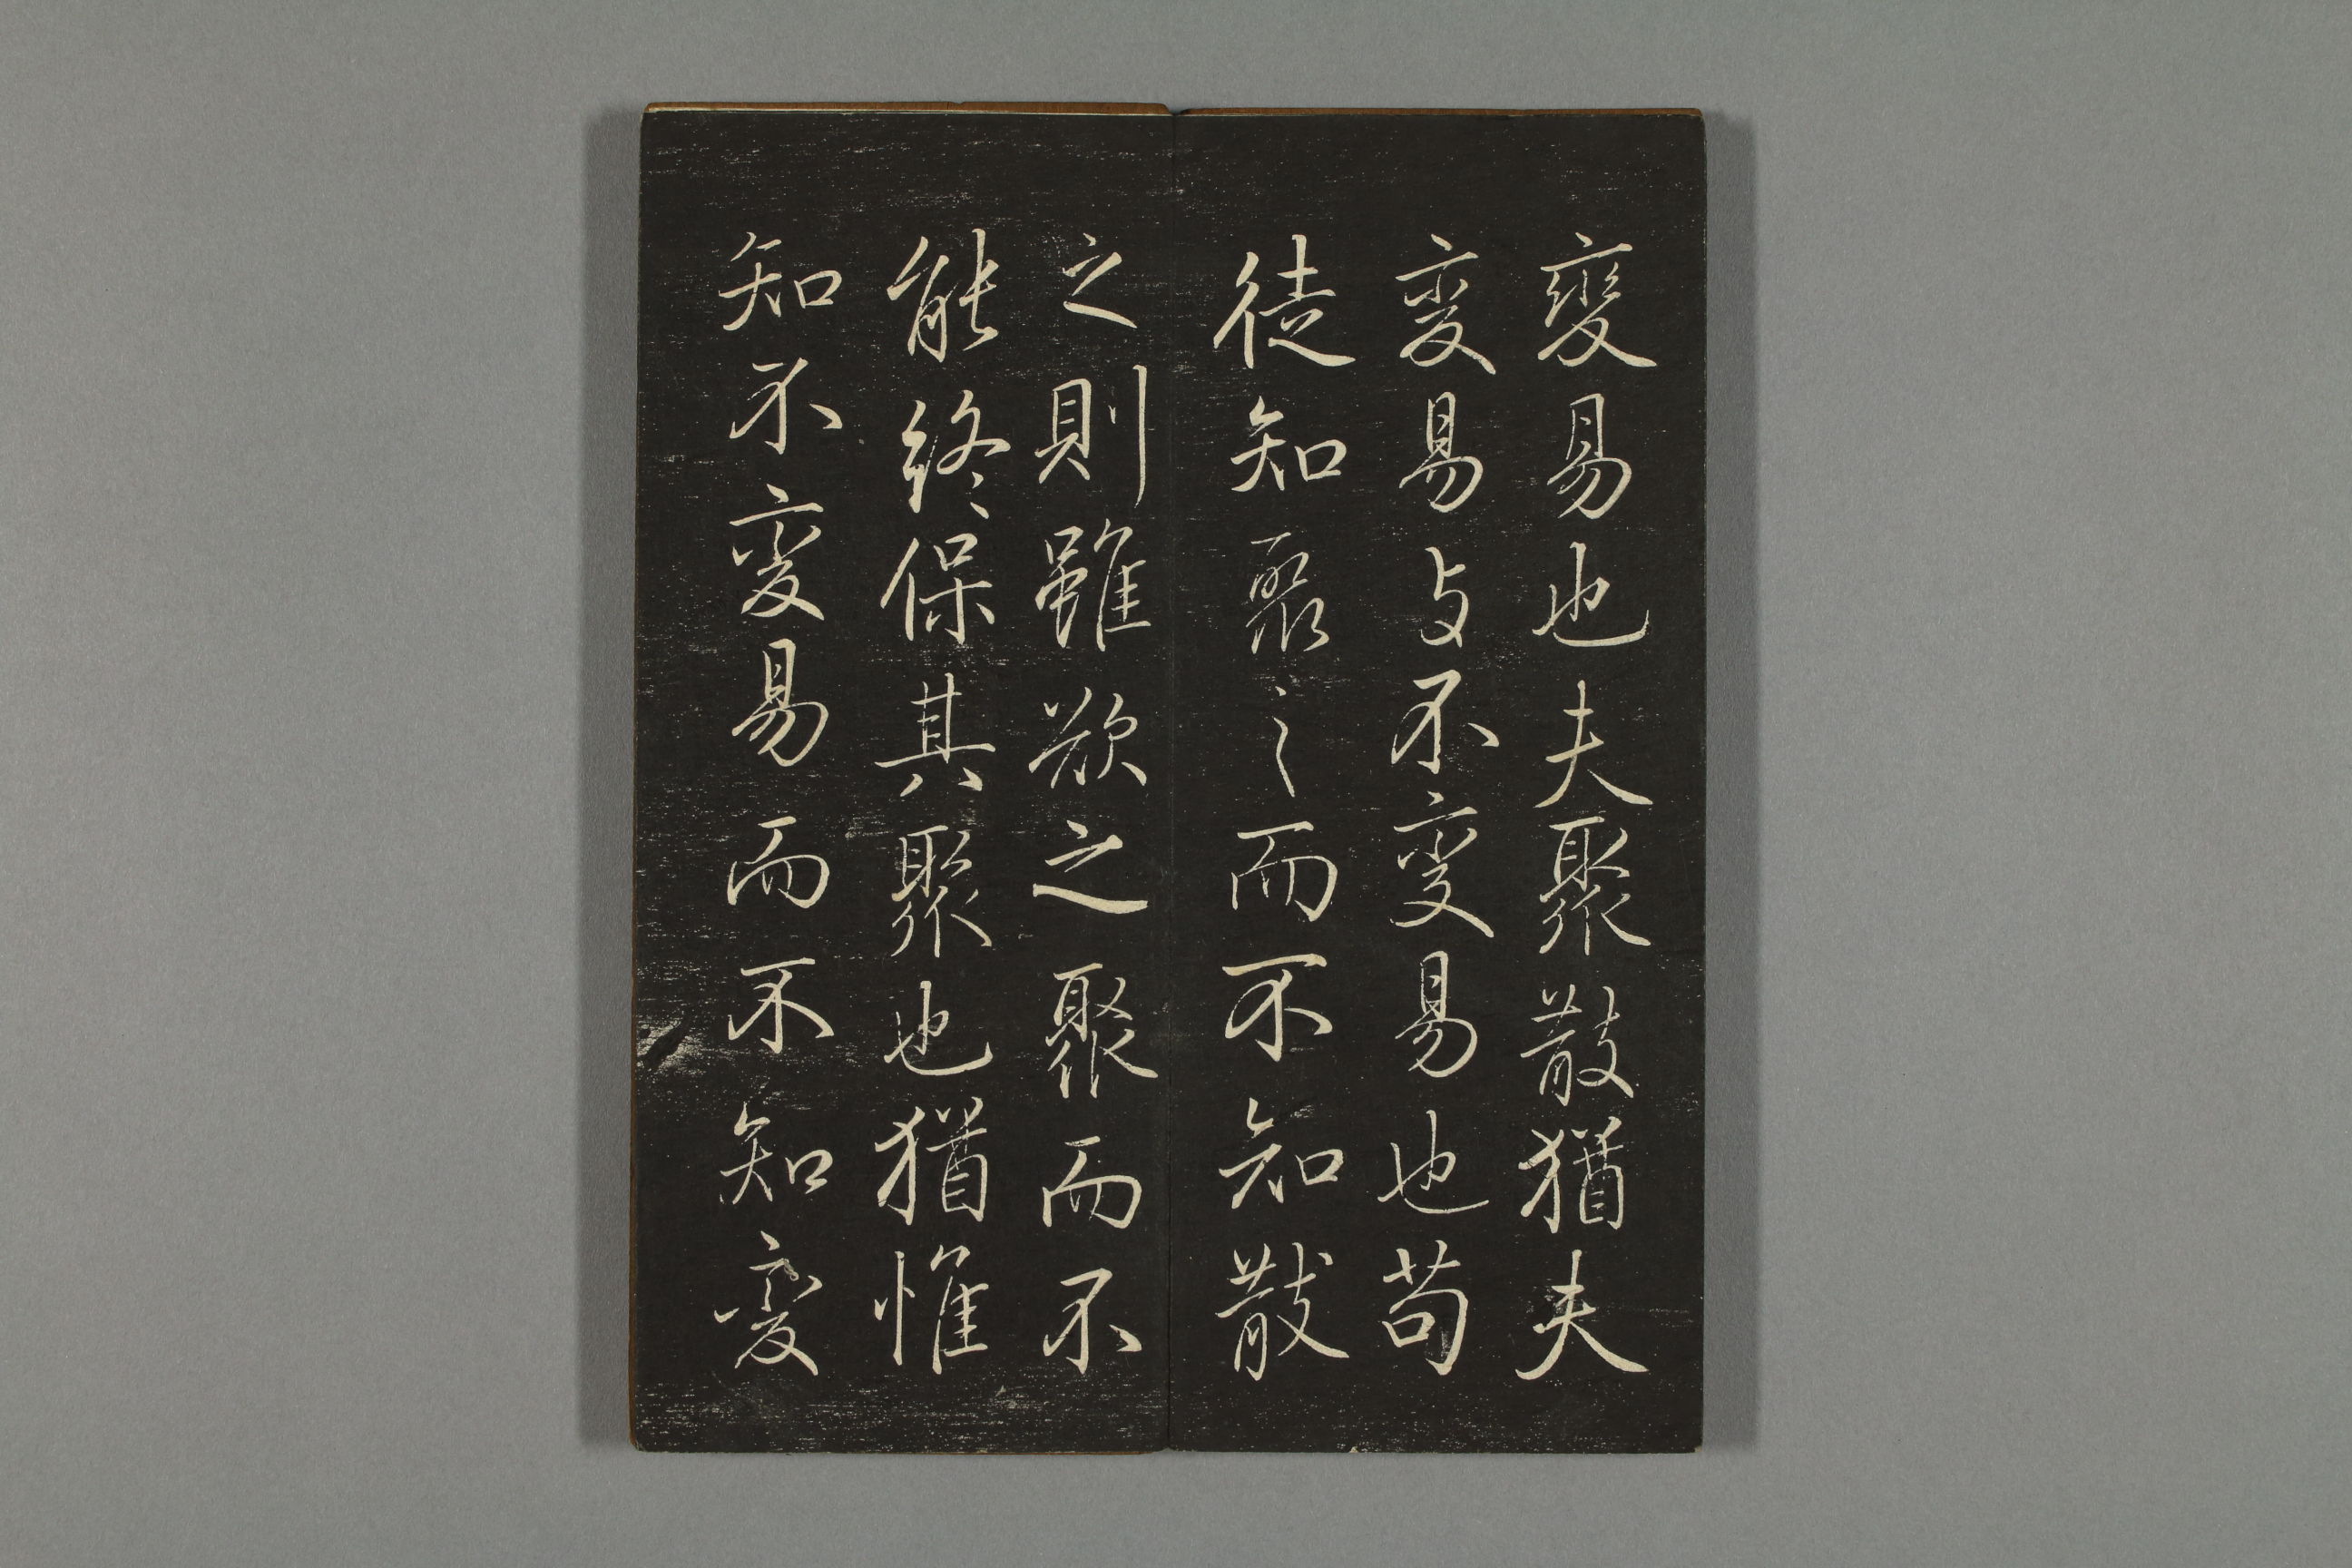 變易也夫聚散猶夫
變易与不變易也苟
徒知聚之而不知散
之則雖欲之聚而不
能終保其聚也猶惟
知不變易而不知變